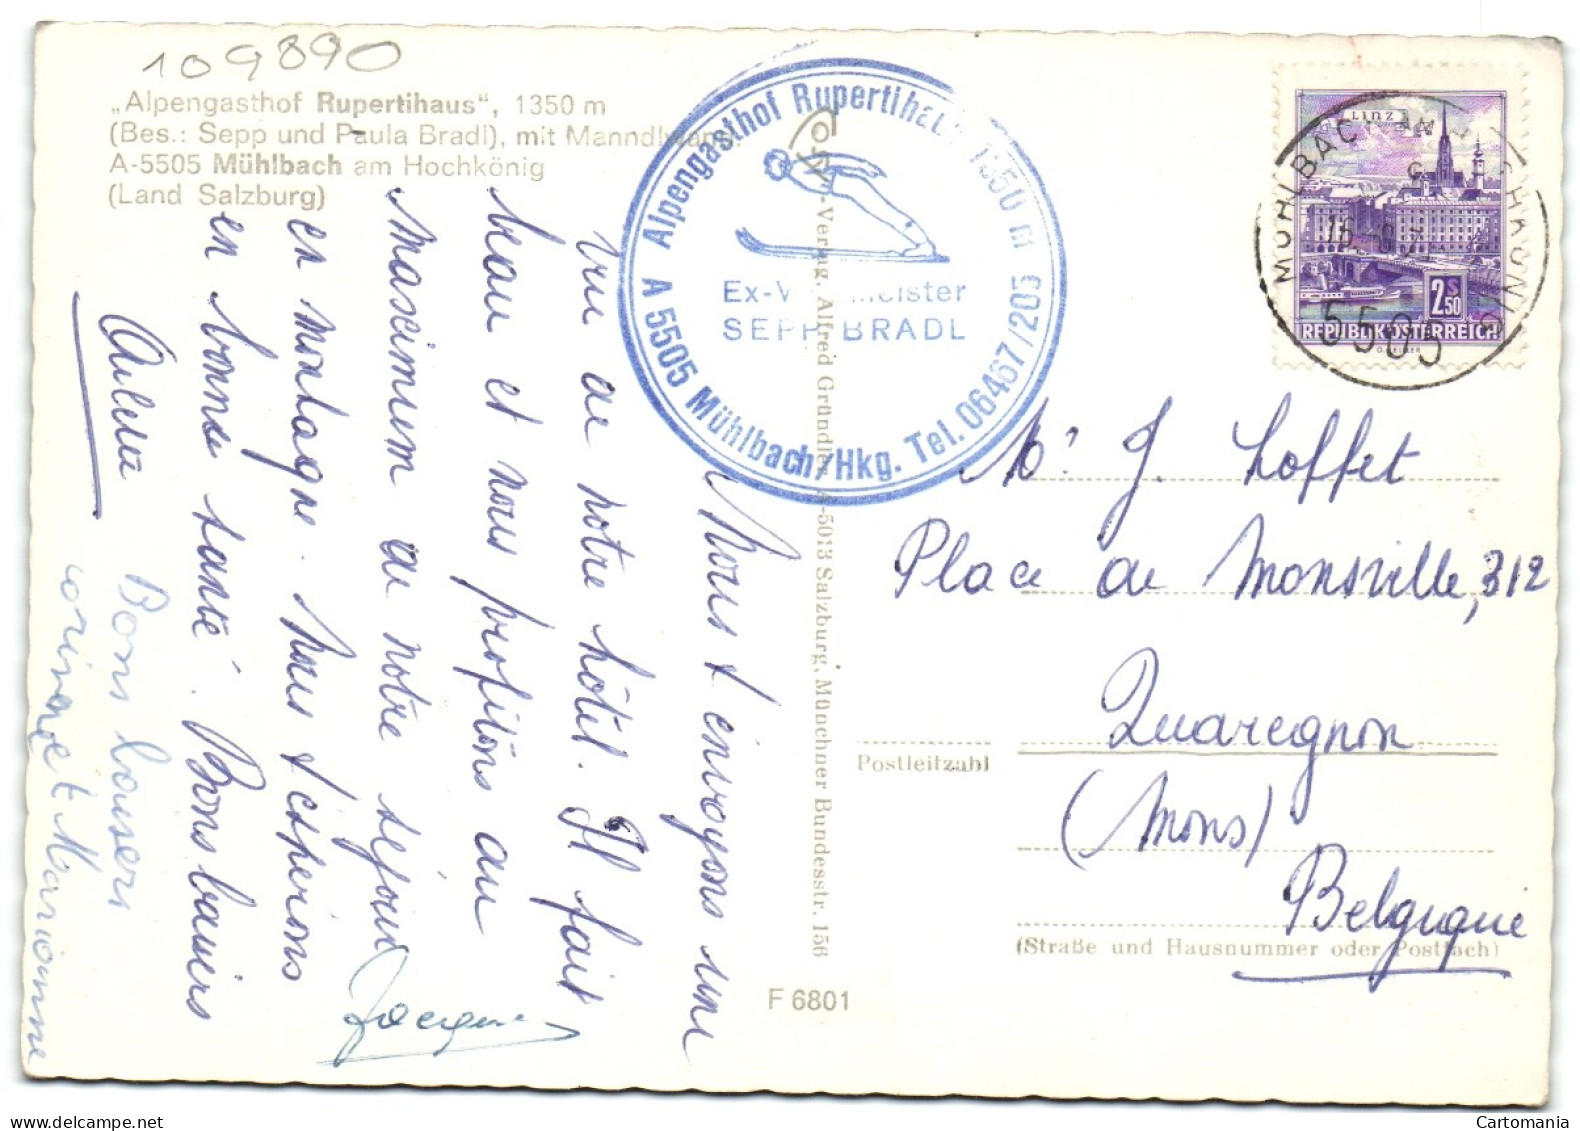 109890
„Alpengasthof Rupertihaus“, 1350 m
(Bes.: Sepp und Paula Bradl), mit Manndlwand
A-5505 Mühlbach am Hochkönig
(Land Salzburg)
Alpengasthof Rupertihaus 1350 m
A 5505 Mühlbach/Hkg. Tel. 06467/205
Ex-W meister
SEPP BRADL
LINZ
2S50
REPUBLIK ÖSTERREICH
MÜHLBACH AM HOCHKÖNIG
5505
Nous t'envoyons une
vue de notre hôtel. Il fait
beau et nous profitons au
maximum de notre séjour
en montagne. Nous t'espérons
en bonne santé. Bons baisers
Jacques
Bons baisers
Corinne et Marianne
-Verlag, Alfred Gründler, A-5013 Salzburg, Münchner Bundesstr. 156
F 6801
Mr J. Loffet
Place de Monsville, 312
Quaregnon
(Mons)
Belgique
Postleitzahl
(Straße und Hausnummer oder Postfach)
Cartomania